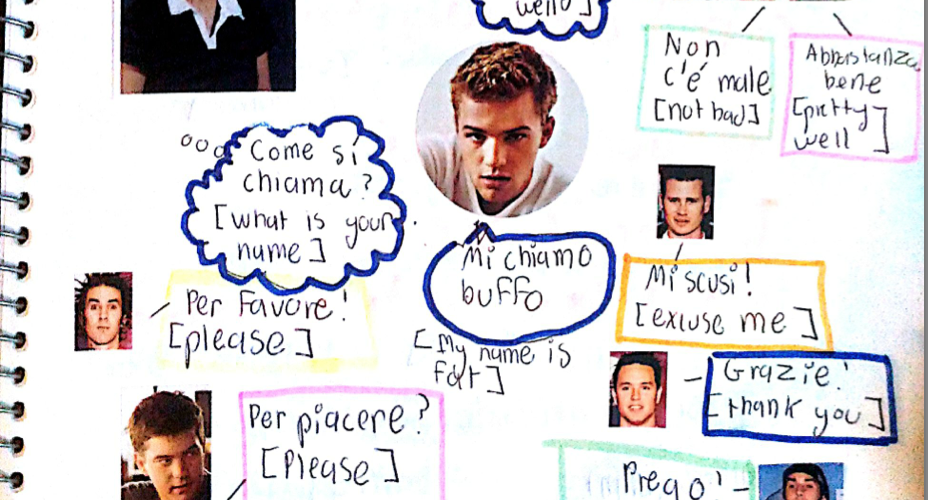 well]
Non
c'é male
[not bad]
Abbastanza
bene
[pretty
well]
Come si
chiama?
[what is your
name]
Mi chiamo
buffo
[My name is
fart]
Mi scusi!
[excuse me]
Per Favore!
[please]
Grazie!
[thank you]
Per piacere?
[Please]
Prego!